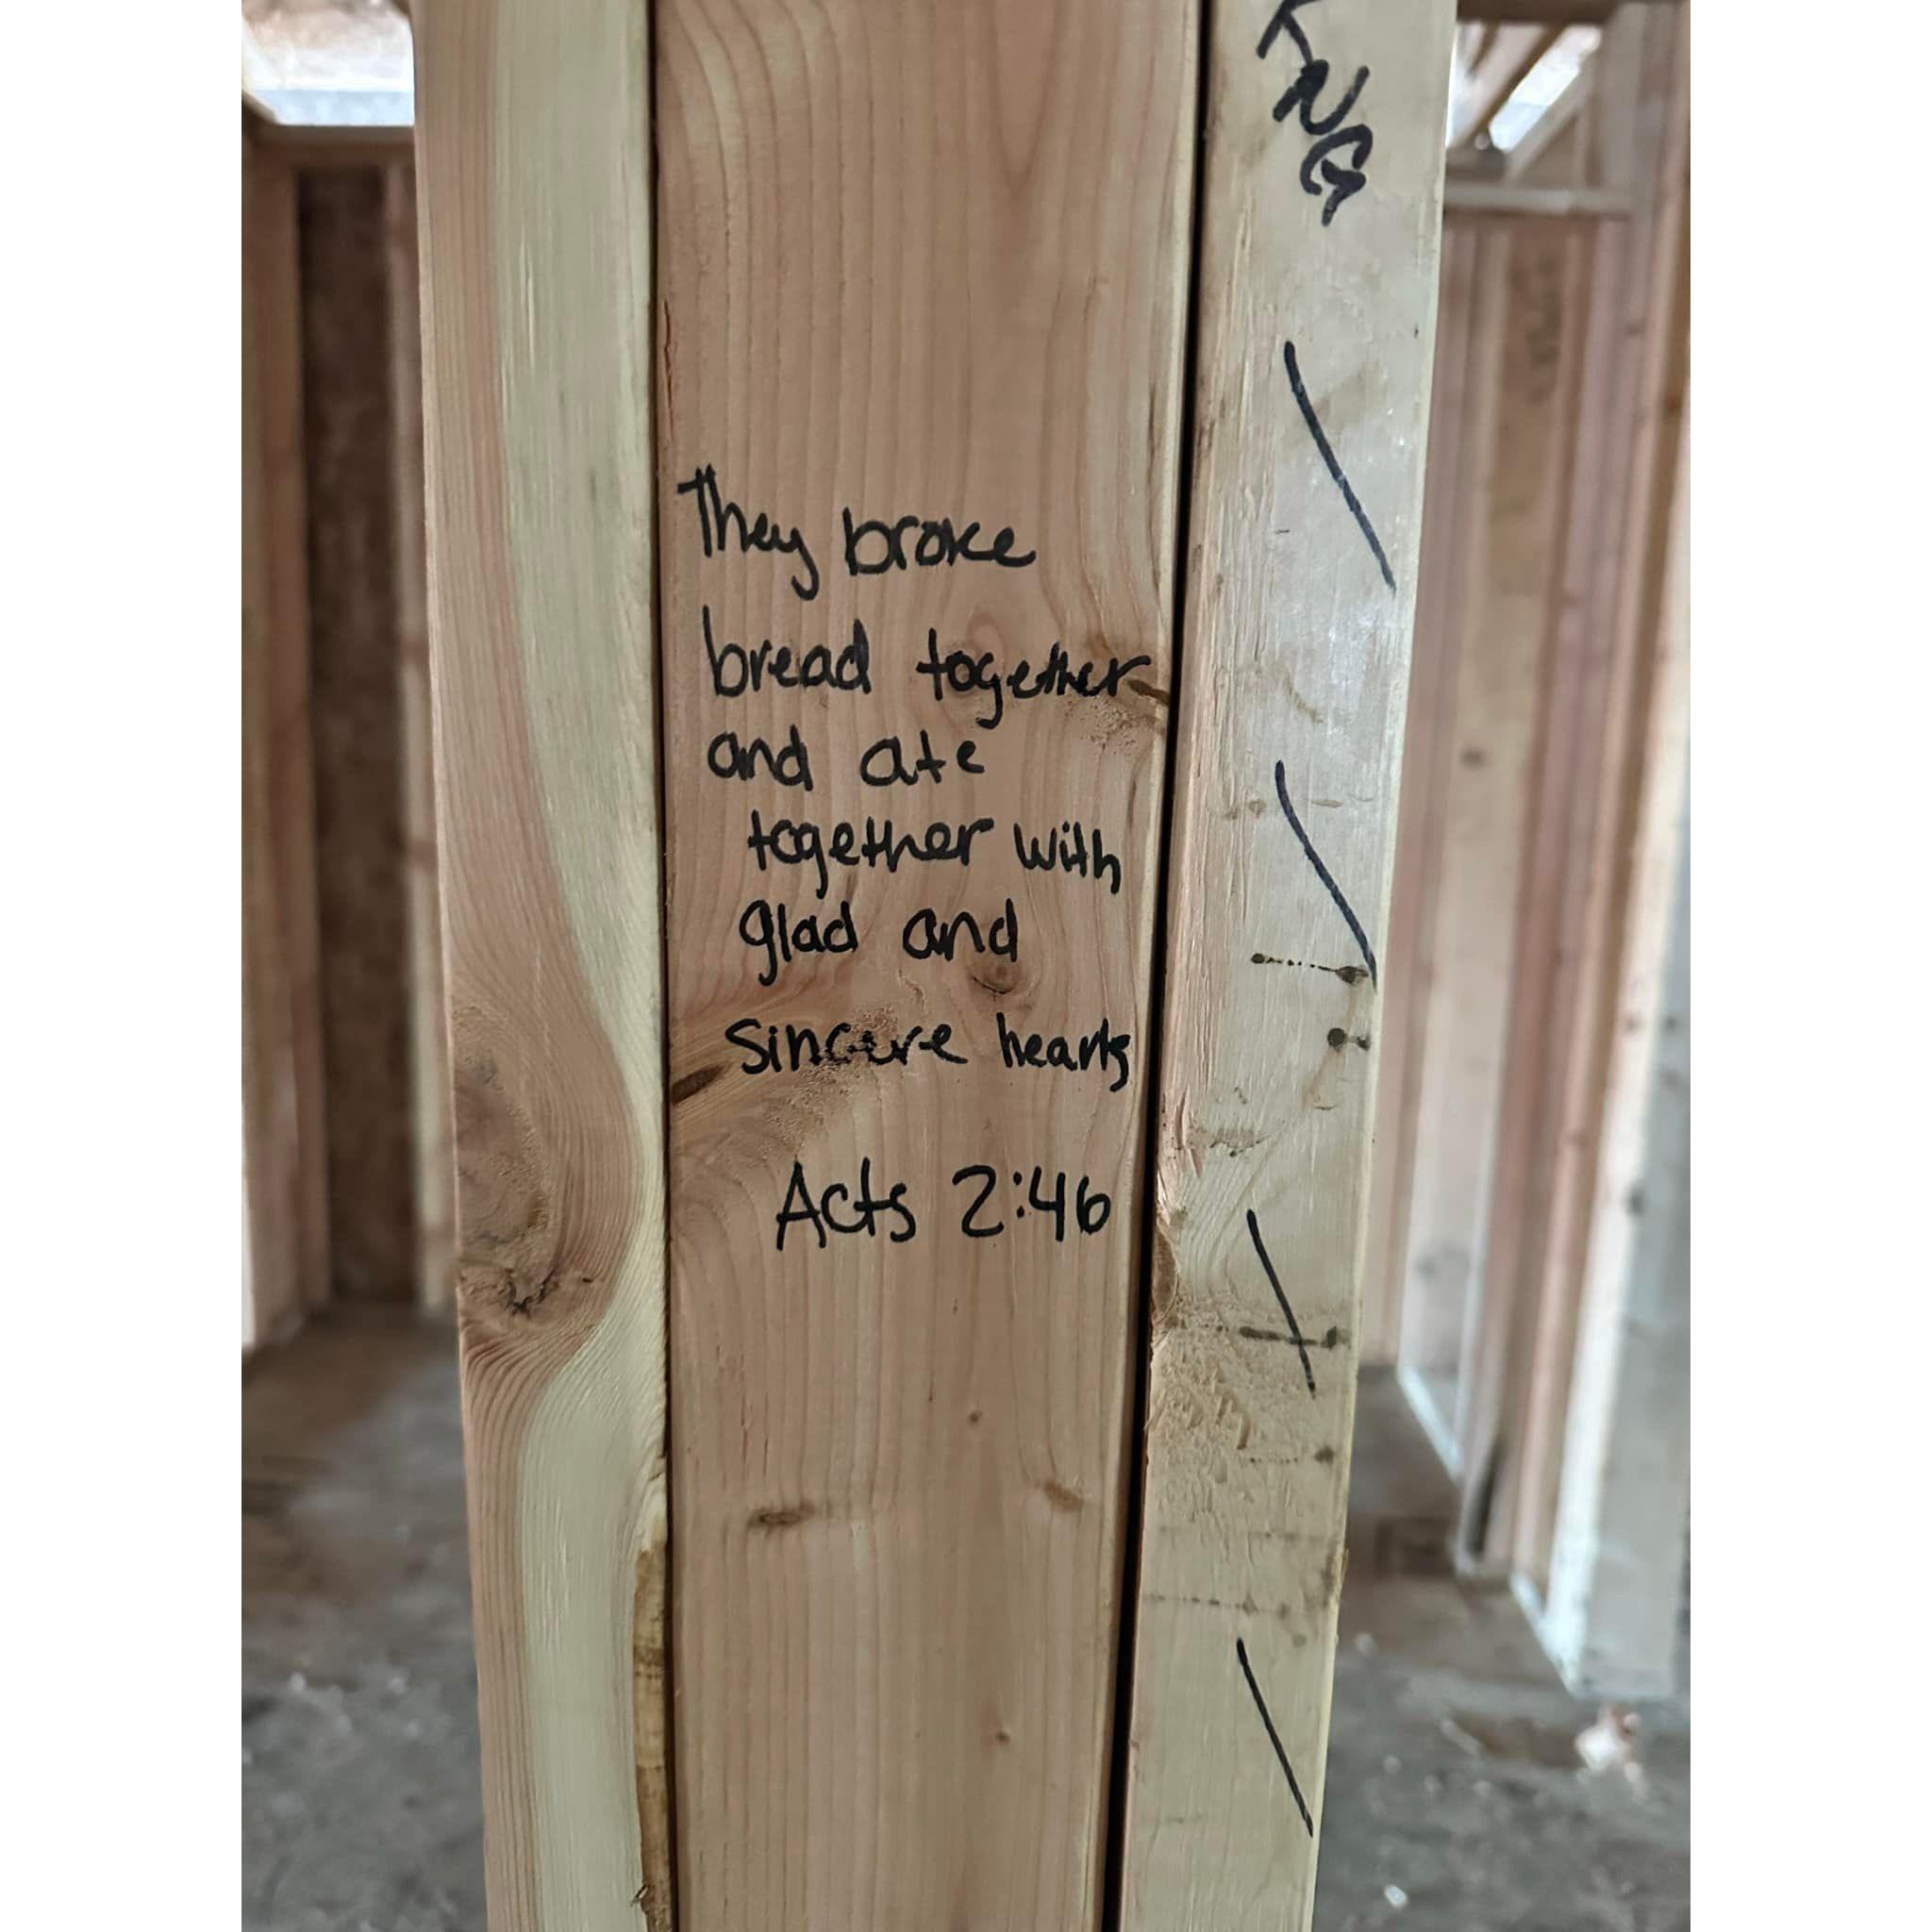 KNG
They broke
bread together
and ate
together with
glad and
sincere hearts
Acts 2:46